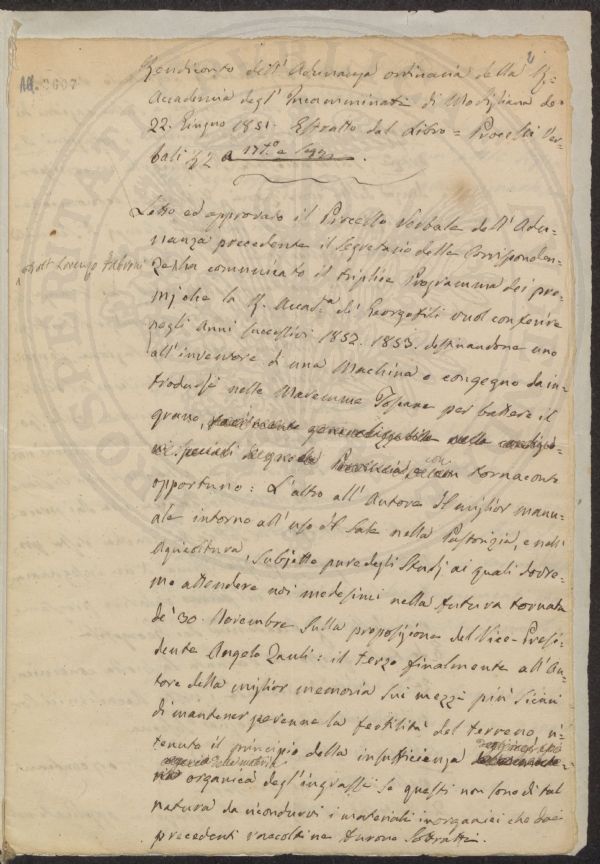 Rendiconto dell'Adunanza ordinaria della R.
Accademia degl'Incamminati di Modigliana de
22. Giugno 1851. Estratto dal Libro = Processi Ver=
bali
Letto ed approvato il Processo Verbale dell'Adu=
nanza precedente il Segretario delle Corrisponden=
Dott Lorenzo Fabrini
ze ha comunicato il triplice Programma dei pre=
mj che la R. Accad.a de' Georgofili vuol conferire
negli Anni successivi 1852. 1853. destinandone uno
all'inventore di una Macchina o congegno da in=
trodursi nelle Maremme Toscane per battere il
grano,
con tornaconto
opportuno: L'altro all'Autore del miglior manu=
ale intorno all'uso del Sale nella Pastorizia, e nell'
Agricoltura, Subjetto pure degli Studj ai quali dovre=
mo attendere noi medesimi nella futura tornata
de' 30. Novembre sulla proposizione del Vice-Presi=
dente Angelo Zauli: il terzo finalmente all'Au=
tore della miglior memoria sui mezzi piu' sicuri
di mantener perenne la fertilità del terreno, ri=
tenuto il principio della insufficienza
organica degl'ingrassi se questi non sono di tal
natura da ricondurvi i materiali inorganici che dai
precedenti raccolti ne furono sottratti.